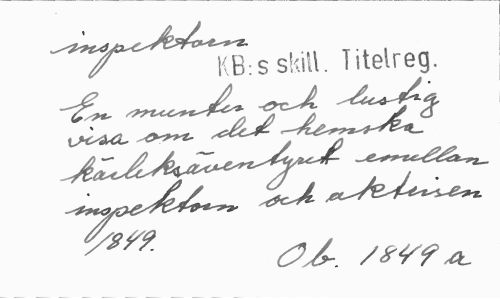 inspektorn
KB:s skill. Titelreg.
En munter och lustig
visa om det hemska
kärleksäventyret emellan
inspektorn och aktrisen
1849.
Ob. 1849 a